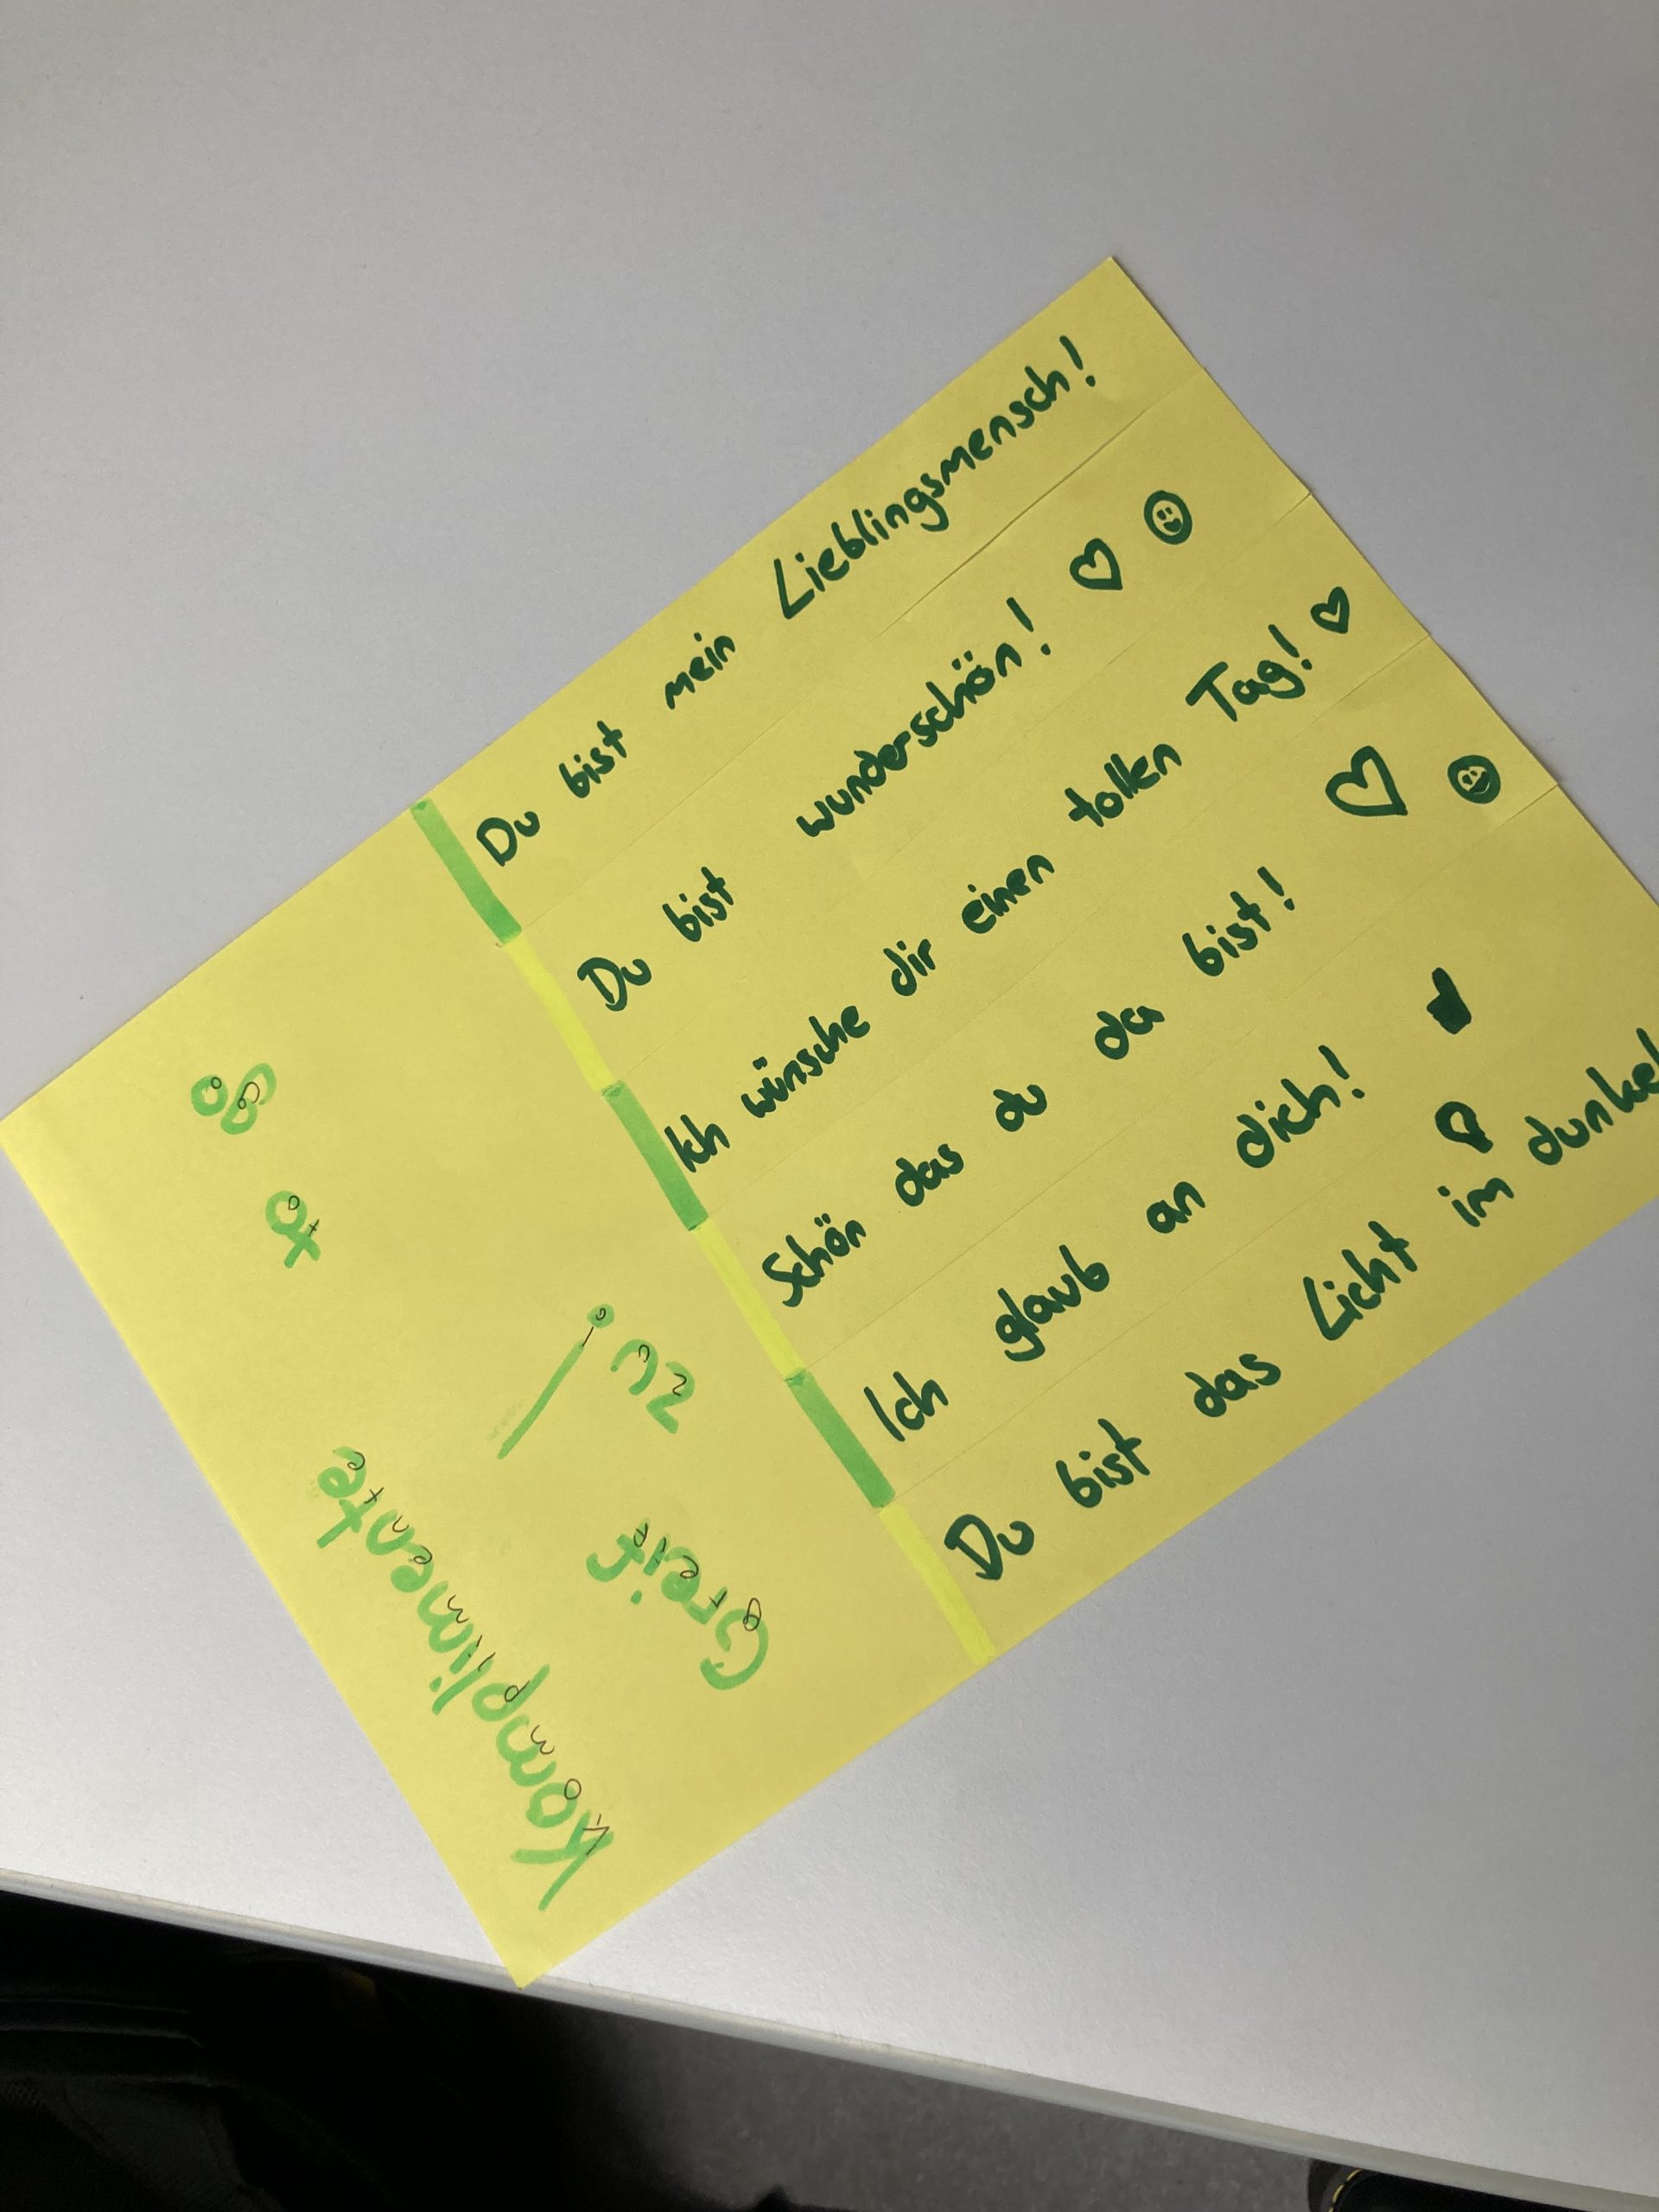 Komplimente to go
Greif zu!
Du bist mein Lieblingsmensch!
Du bist wunderschön!
Ich wünsche dir einen tollen Tag!
Schön das du da bist!
Ich glaub an dich!
Du bist das Licht im dunkel